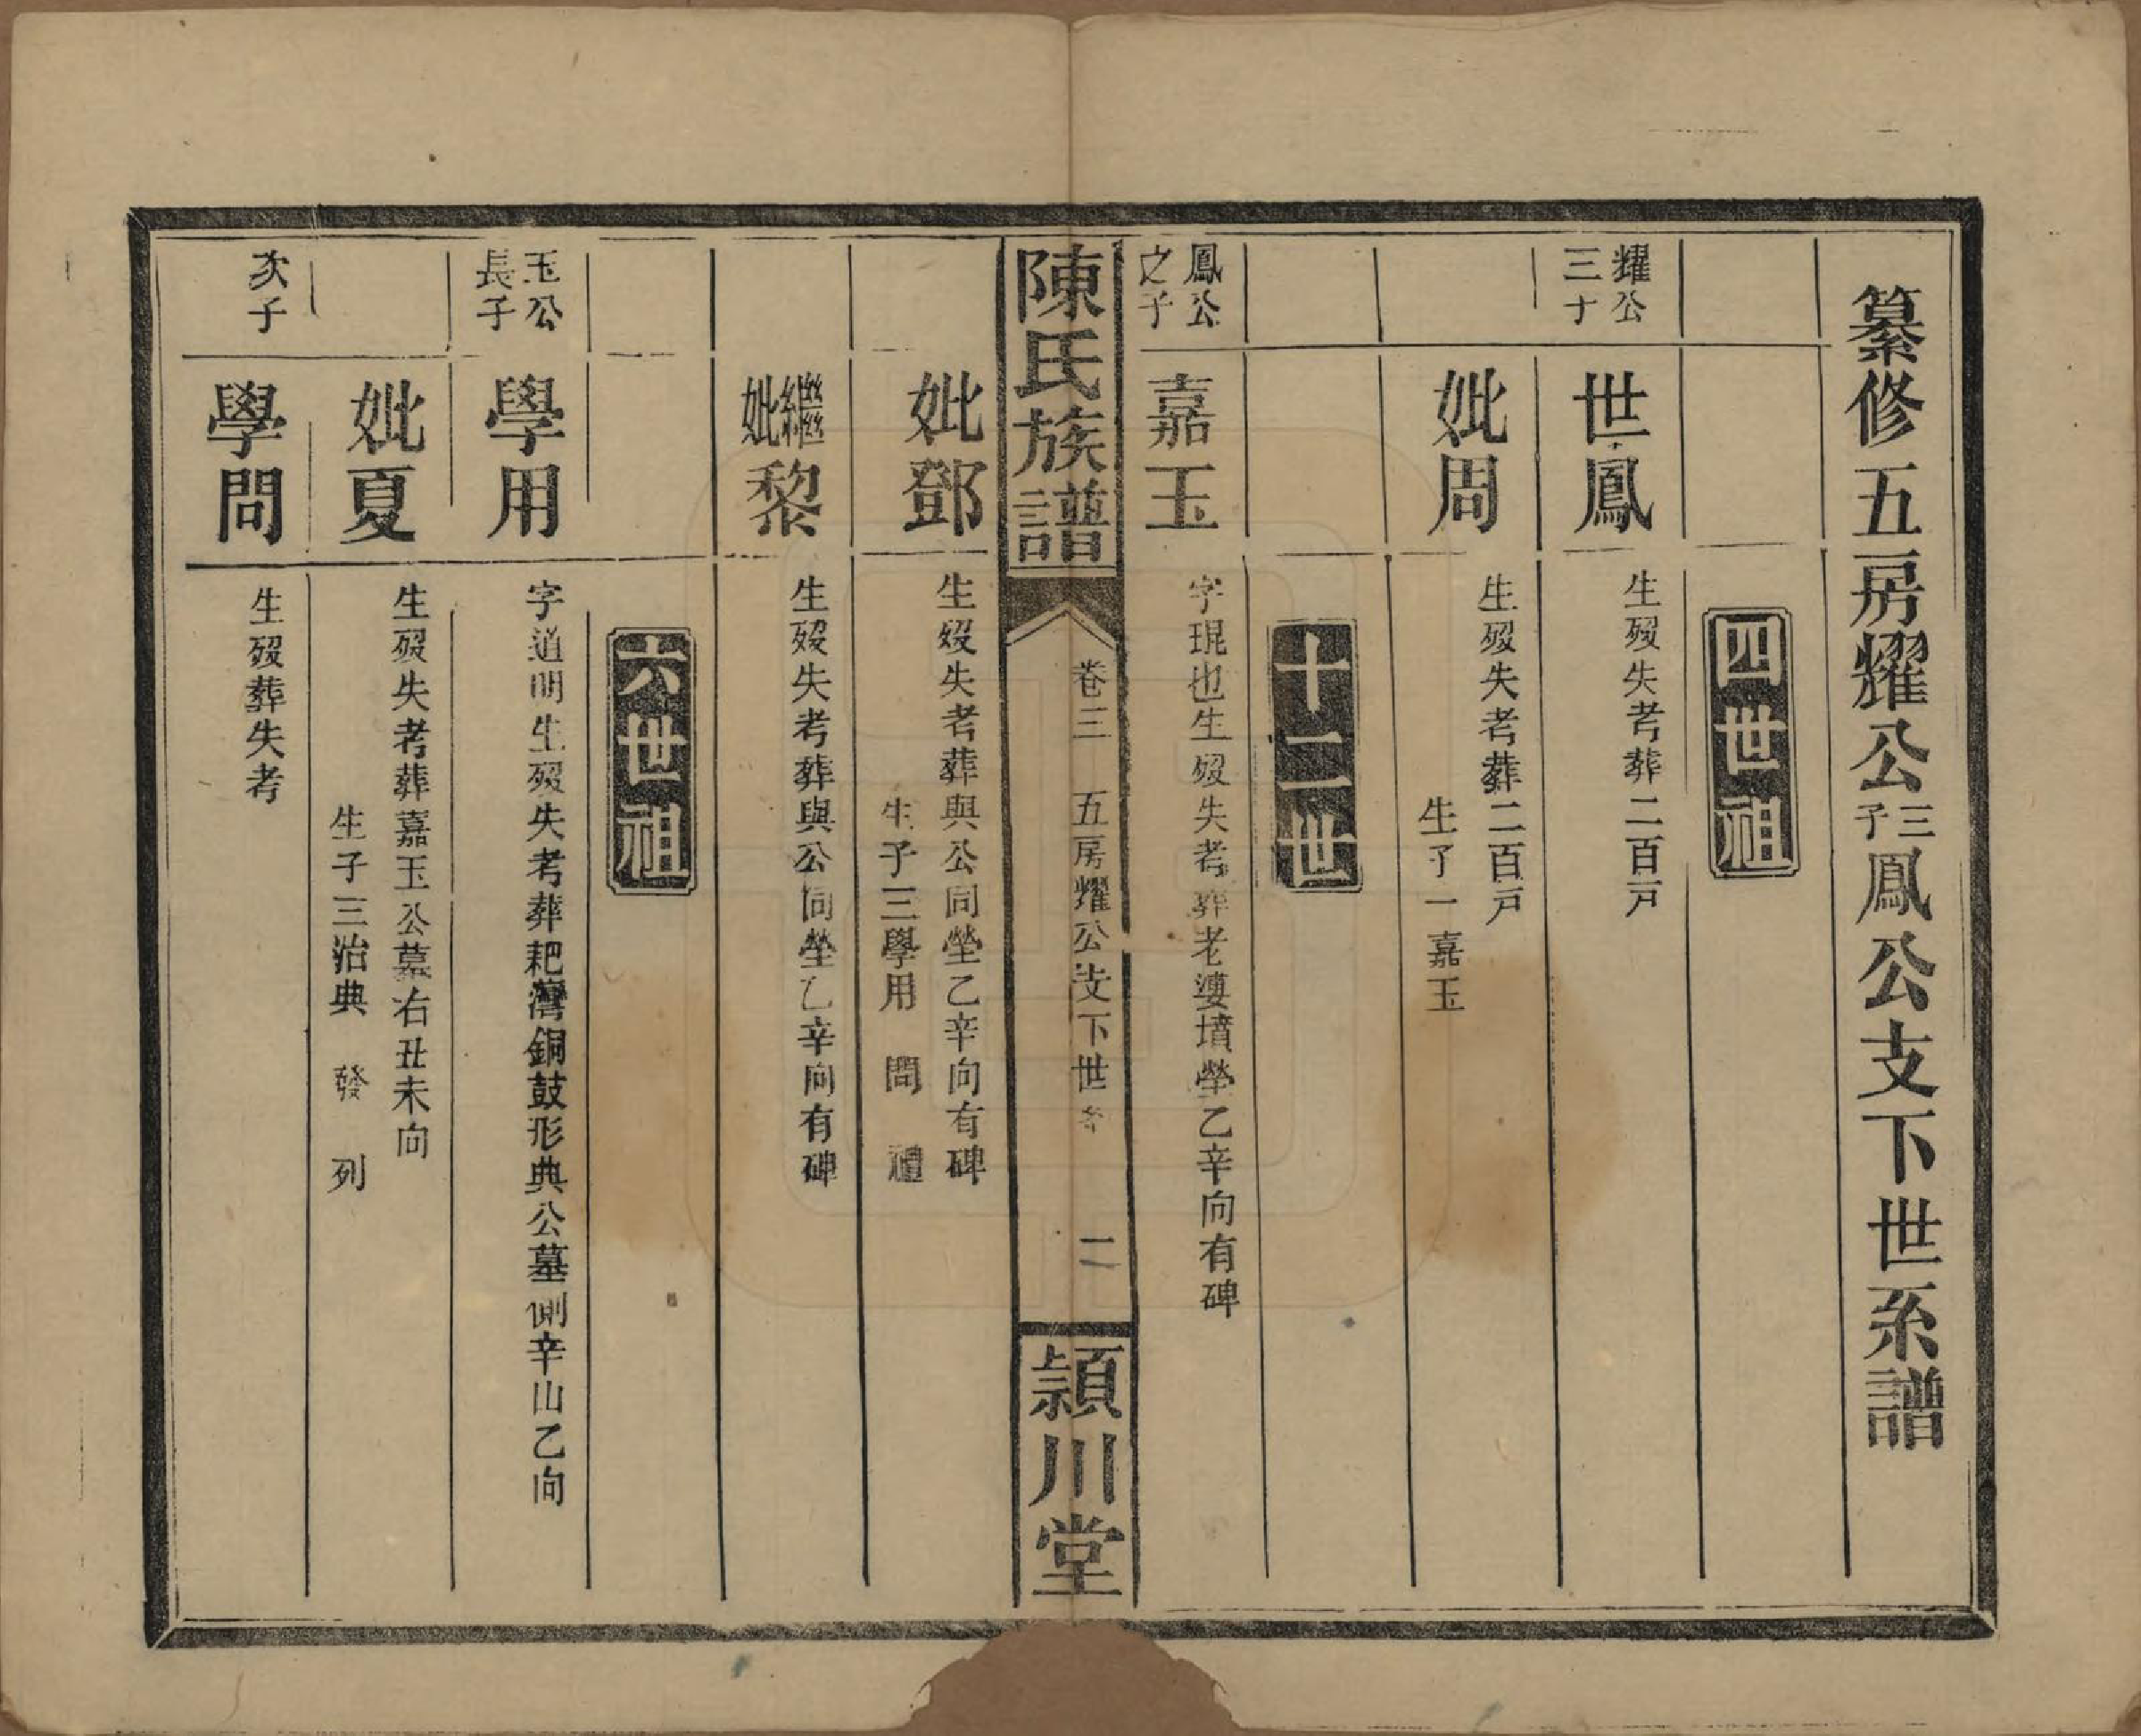 纂修五房耀公三子鳳公支下世系譜
四世祖
耀公三十
世鳳
生歿失考葬二百戸
妣周
生歿失考葬二百戸
生子一嘉玉
十二世
鳳公之子
嘉玉
字琨也生歿失考葬老婆墳塋乙辛向有碑
陳氏族譜
卷三 五房耀公支下世系 二
潁川堂
妣鄧
生歿失考葬與公同塋乙辛向有碑
生子三學用 問 禮
繼妣黎
生歿失考葬與公同塋乙辛向有碑
六世祖
玉公長子
學用
字道明生歿失考葬耙灣銅鼓形典公墓側辛山乙向
妣夏
生歿失考葬嘉玉公墓右丑未向
生子三治典 發 列
次子
學問
生歿葬失考